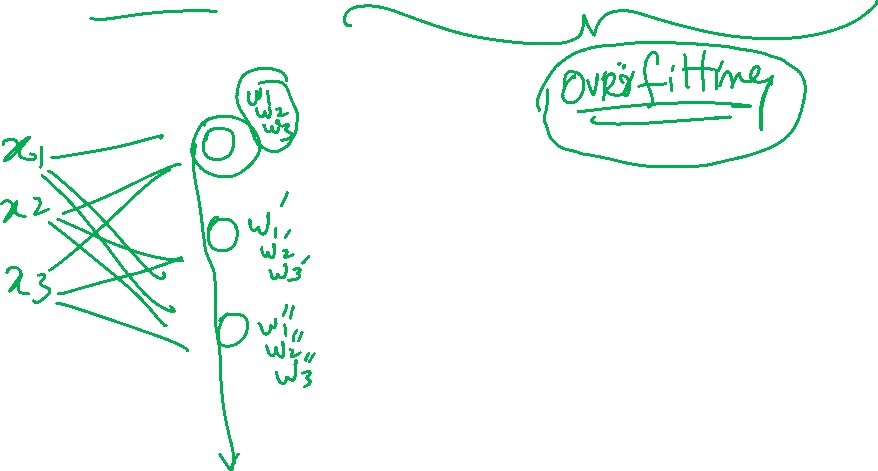 overfitting
w1
w2
w3
x1
x2
x3
w1'
w2'
w3'
w1''
w2''
w3''